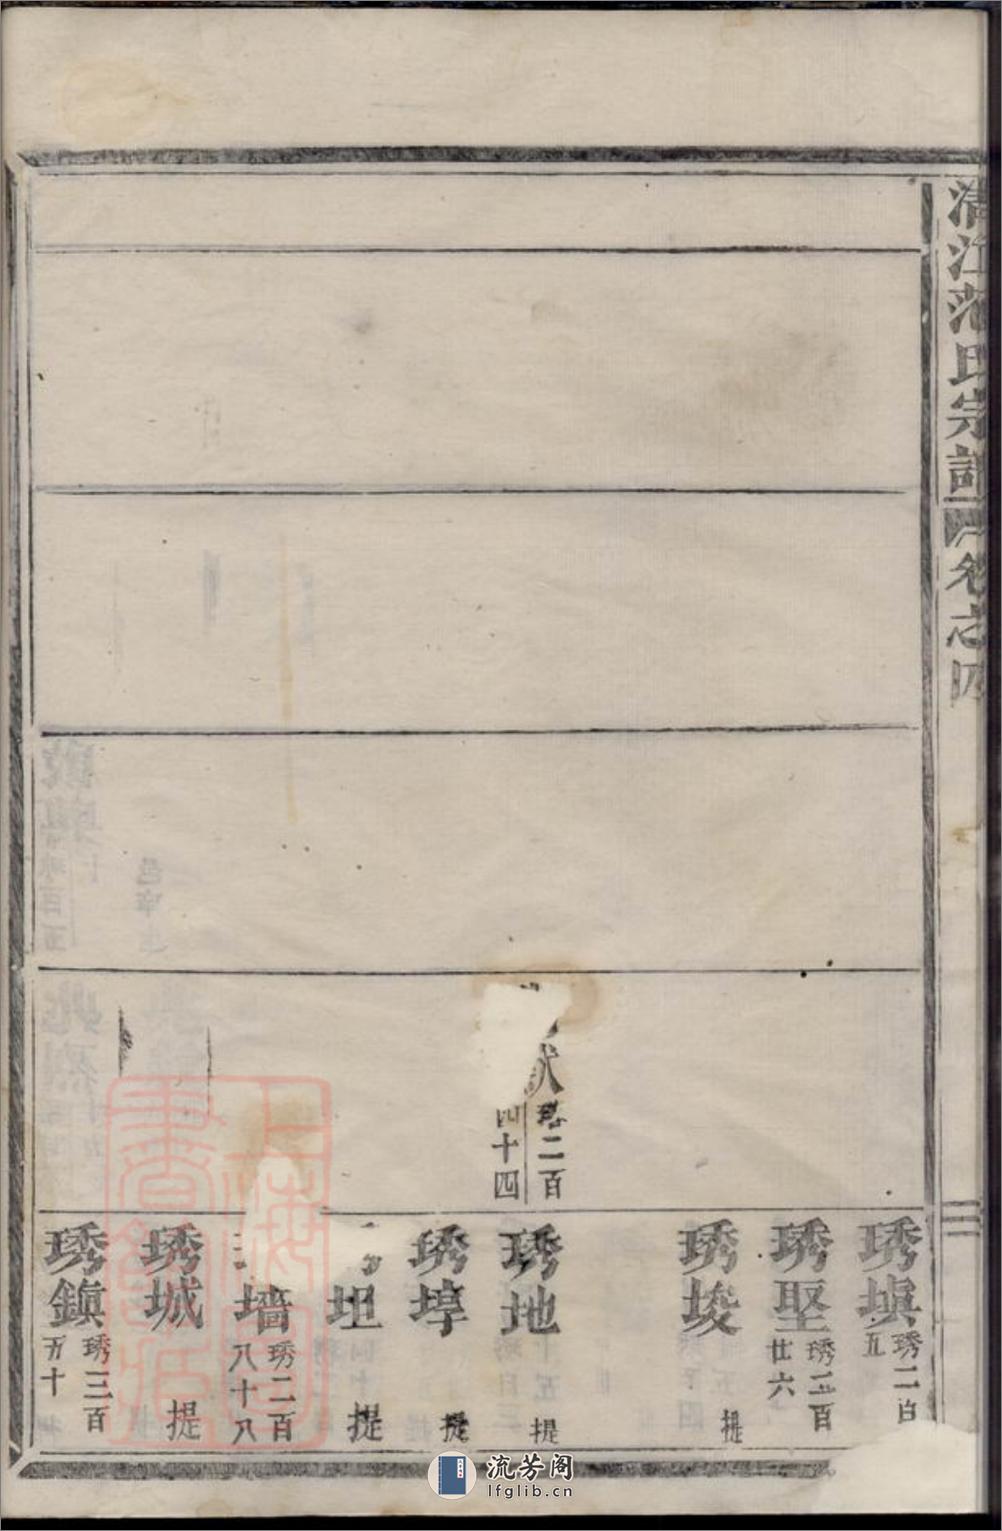 清江范氏宗譜
卷之四
琇塡
琇二百
五
琇堅
琇二百
廿六
琇埈
提
琇二百
四十四
琇地
提
琇埻
提
坦
提
墻
琇二百
八十八
琇城
提
琇鎭
琇三百
五十
上海圖書館藏
流芳阁
lfglib.cn